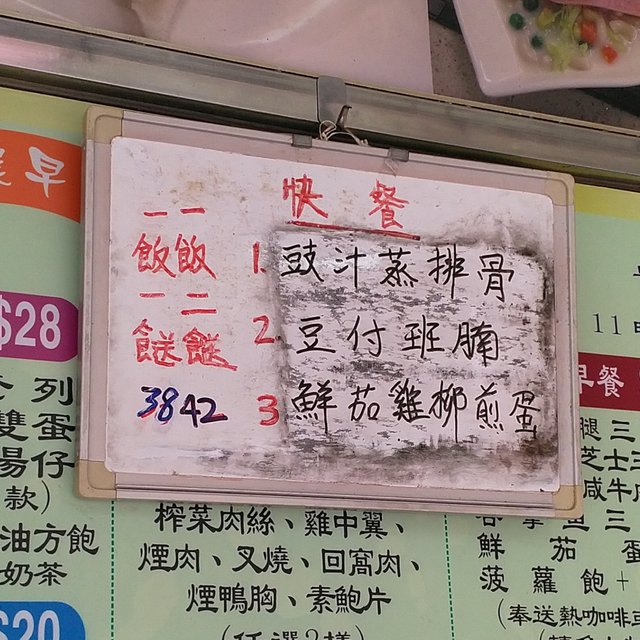 快餐
一一
飯飯
一二
餸餸
3842
1. 豉汁蒸排骨
2. 豆付班腩
3 鮮茄雞柳煎蛋
早
$28
列
雙蛋
湯仔
款)
油方飽
奶茶
$20
榨菜肉絲、雞中翼、
煙肉、叉燒、回窩肉、
煙鴨胸、素鮑片
11
早餐
腿三
芝士三
咸牛肉
鮮茄蛋
菠蘿飽+
(奉送熱咖啡或